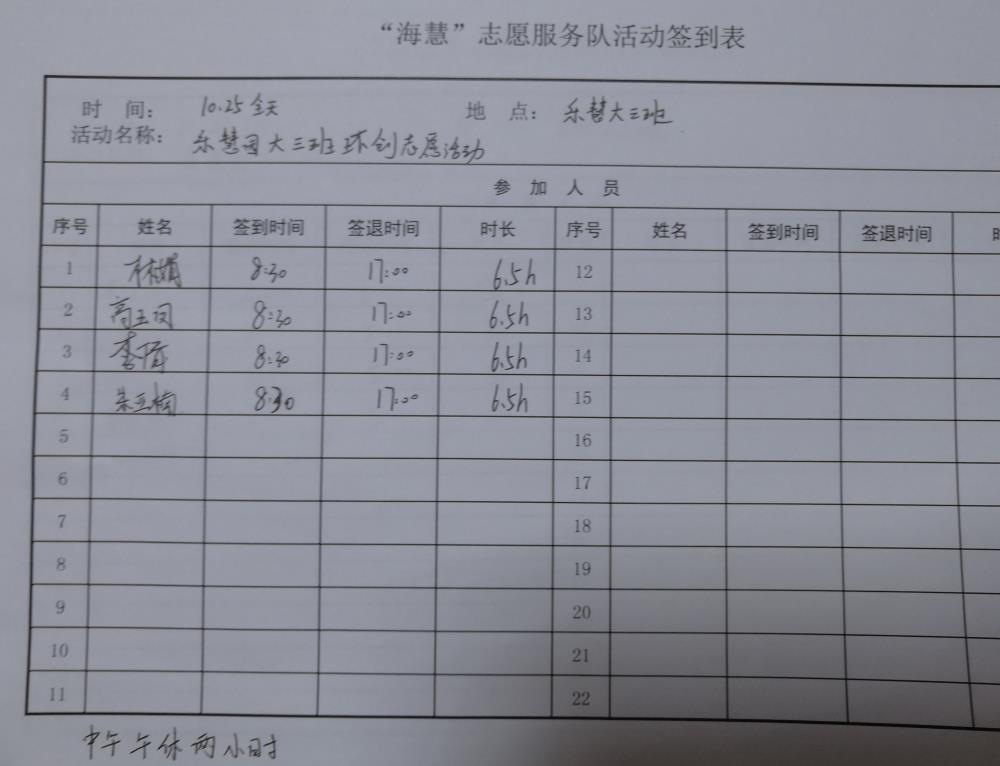 “海慧”志愿服务队活动签到表
时 间： 10.25 全天 地 点： 乐慧大三班
活动名称： 乐慧园大三班环创志愿活动
参 加 人 员
序号 姓名 签到时间 签退时间 时长 序号 姓名 签到时间 签退时间
1 林娟 8:30 17:00 6.5h 12
2 高玉凤 8:30 17:00 6.5h 13
3 李 8:30 17:00 6.5h 14
4 朱玉楠 8:30 17:00 6.5h 15
5 16
6 17
7 18
8 19
9 20
10 21
11 22
中午午休两小时